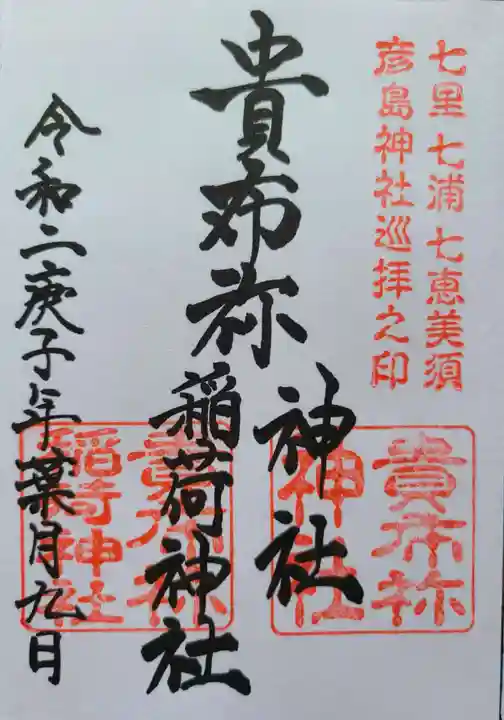 七里七浦七恵美須
彦島神社巡拝之印
貴布祢
神社
稲荷神社
令和二庚子年葉月九日
貴布祢
神社